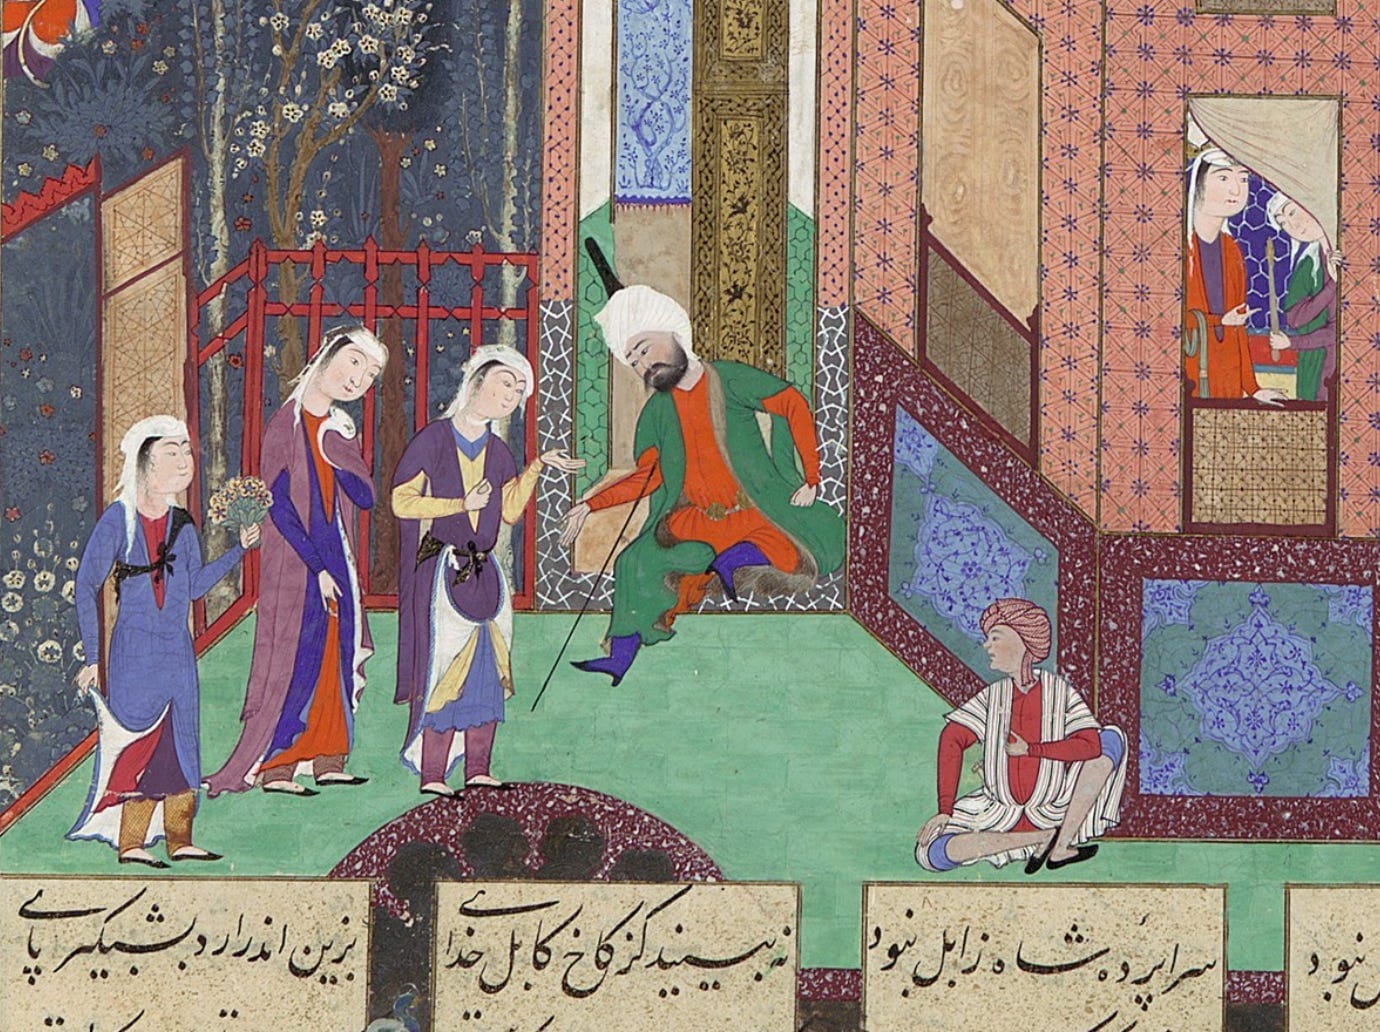 نبود سراپرده شاه زابل نبود نه بیند کز کاخ کابل خدای بزین اندر آرد بشبگیر پای